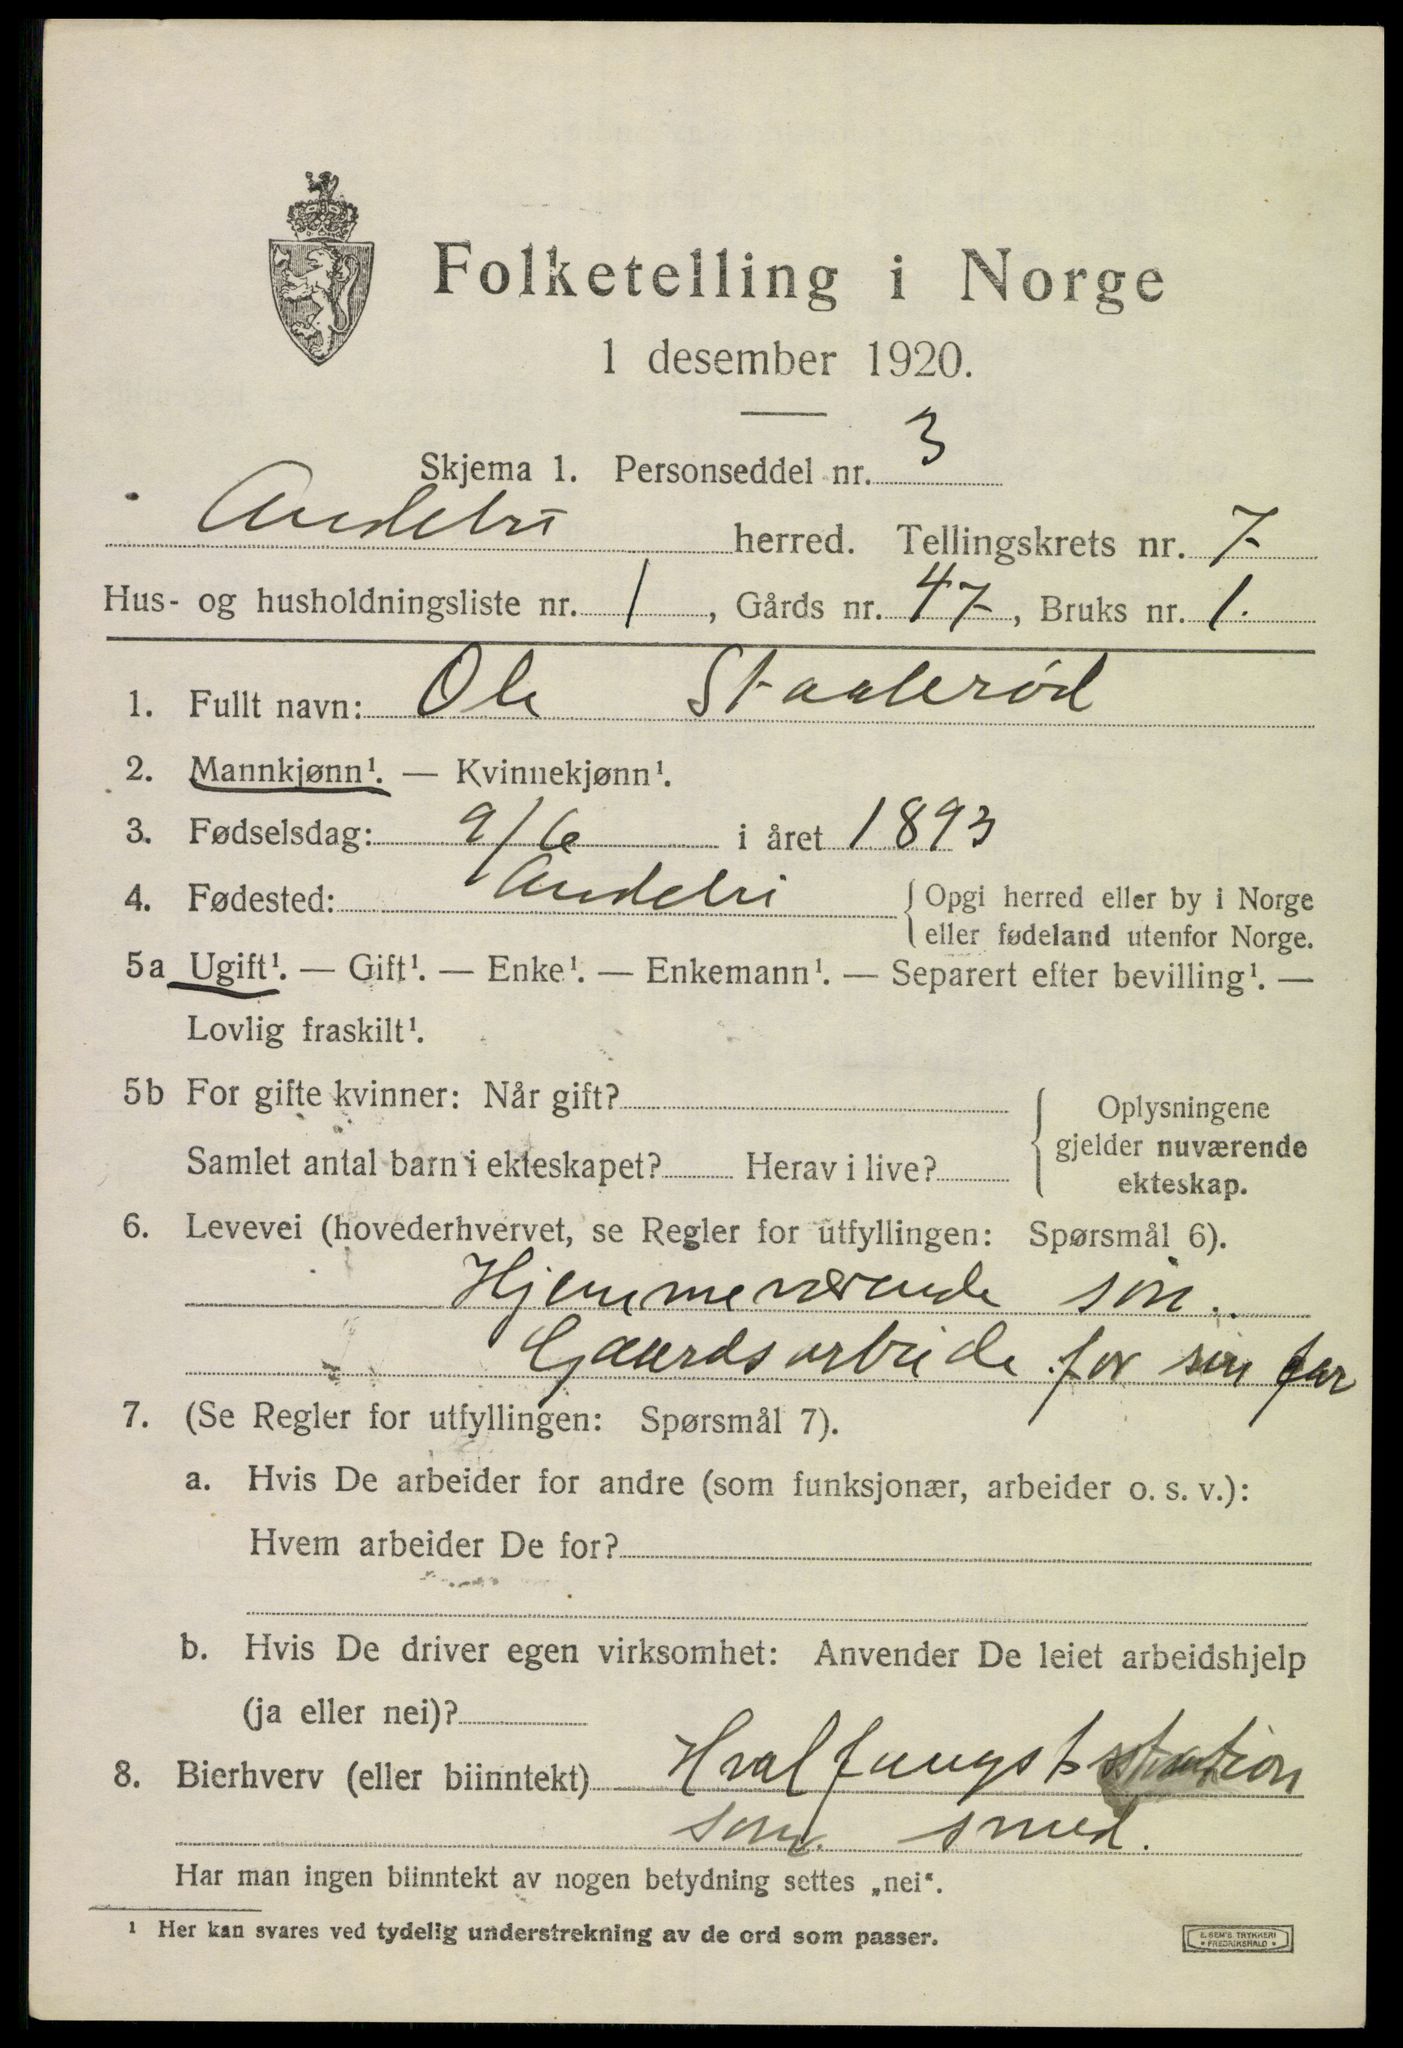 Folketelling i Norge
1 desember 1920.
Skjema 1. Personseddel nr. 3
Andebu herred. Tellingskrets nr. 7
Hus- og husholdningsliste nr. 1, Gårds nr. 47, Bruks nr. 1.
1. Fullt navn: Ole Staalerød
2. Mannkjønn¹. — Kvinnekjønn¹.
3. Fødselsdag: 9/6 i året 1893
4. Fødested: Andebu { Opgi herred eller by i Norge
eller fødeland utenfor Norge.
5a Ugift¹. — Gift¹. — Enke¹. — Enkemann¹. — Separert efter bevilling¹. —
Lovlig fraskilt¹.
5b For gifte kvinner: Når gift?
Samlet antal barn i ekteskapet? Herav i live?
{ Oplysningene
gjelder nuværende
ekteskap.
6. Levevei (hovederhvervet, se Regler for utfyllingen: Spørsmål 6).
Hjemmeværende søn.
Gaardsarbeide for sin far
7. (Se Regler for utfyllingen: Spørsmål 7).
a. Hvis De arbeider for andre (som funksjonær, arbeider o. s. v.):
Hvem arbeider De for?
b. Hvis De driver egen virksomhet: Anvender De leiet arbeidshjelp
(ja eller nei)?
8. Bierhverv (eller biinntekt) Hvalfangststation
som smed.
Har man ingen biinntekt av nogen betydning settes „nei“.
¹ Her kan svares ved tydelig understrekning av de ord som passer.
E. SEM'S TRYKKERI
FREDRIKSHALD